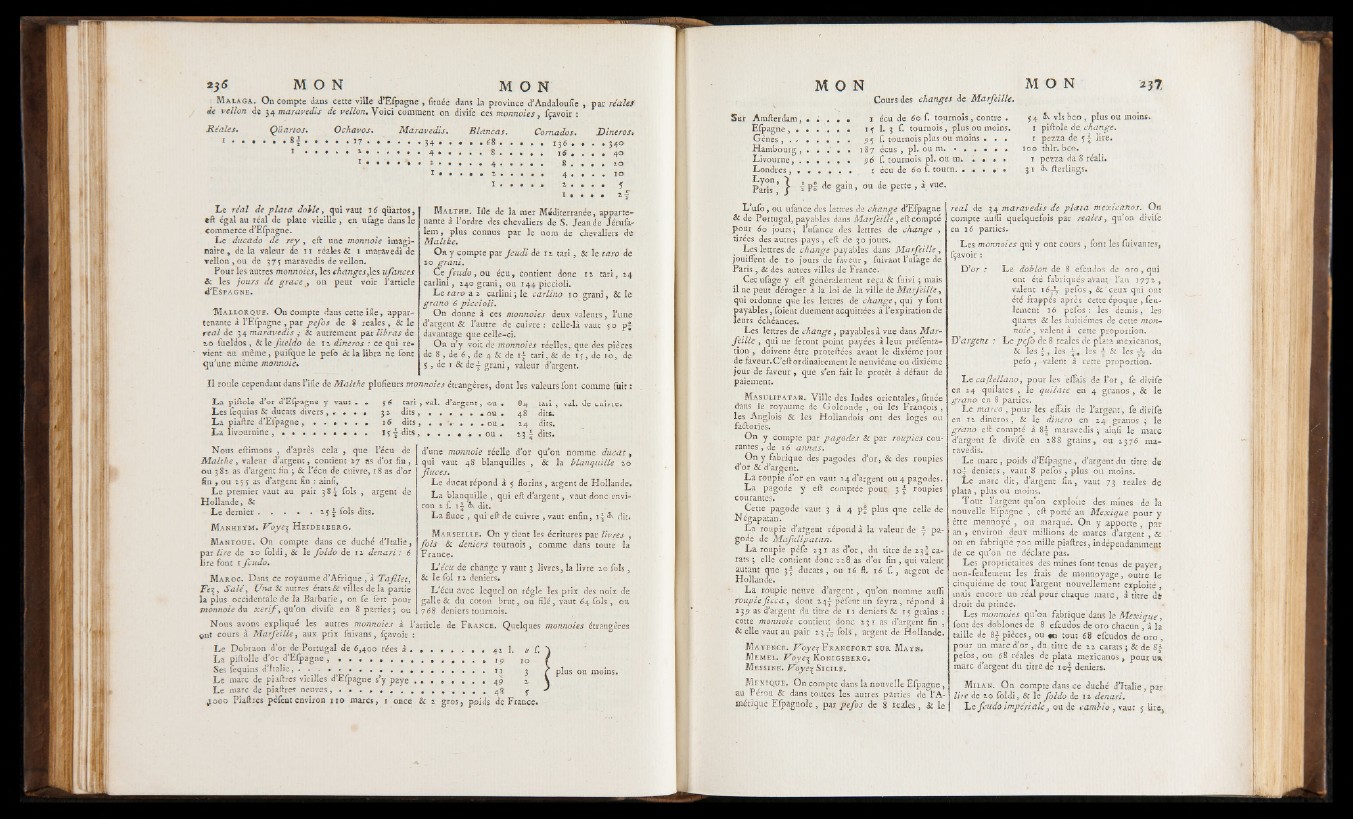 236 MON MON
MALAGA. On compte dans cette ville d'Espagne, située dans la province d'Andalousie, par réales
de vellon de 34 maravedis de vellon. Voici comment on divise ces monnoies, sçavoir :
Réales. Qüartos. Ochavos. Maravedis. Blancas. Cornados. Dineros.
1 . . . . . . 8½ . . . . . 17 . . . . . 34 . . . . . 68 . . . . . 136 . . . . 340
1 . . . . . 2 . . . . . 4 . . . . . 8 . . . . . 16 . . . . 40
1 . . . . . 2 . . . . . 4 . . . . . 8 . . . . 20
1 . . . . . 2 . . . . . 4 . . . . 10
1 . . . . . 2 . . . . 5
1 . . . . 2½
Le réal de plata doble, qui vaut 16 qüartos,
est égal au réal de plate vieille, en usage dans le
commerce d'Espagne.
Le ducado de rey, est une monnoie imagi-
naire, de la valeur de 11 réales & 1 maravedi de
vellon, ou de 375 maravedis de vellon.
Pour les autres monnoies, les changes, les usances
& les jours de grace, on peut voir l'article
d'ESPAGNE.
MALLORQUE. On compte dans cette isle, appar-
tenante à l'Espagne, par pesos de 8 reales, & le
real de 34 maravedis ; & autrement par libras de
20 sueldos, & le sueldo de 12 dineros : ce qui re-
vient au même, puisque le peso & la libra ne sont
qu'une même monnoie.
MALTHE. Isle de la mer Méditerranée, apparte-
nante à l'ordre des chevaliers de S. Jean de Jérusa-
lem, plus connus par le nom de chevaliers de
Malthe.
On y compte par scudi de 12 tari, & le taro de
20 grani.
Ce scudo, ou écu, contient donc 12 tari, 24
carlini, 240 grani, ou 144 piccioli.
Le taro a 2 carlini ; le carlino 10 grani, & le
grano 6 piccioli.
On donne à ces monnoies deux valeurs, l'une
d'argent & l'autre de cuivre : celle-là vaut 50 p°
davantage que celle-ci.
On n'y voit de monnoies réelles, que des pièces
de 8, de 6, de 4 & de tari, & de 15, de 10, de
5, de 1 & de ½ grani, valeur d'argent.
Il roule cependant dans l'isle de Malthe plusieurs monnoies étrangères, dont les valeurs sont comme suit :
La pistole d'or d'Espagne y vaut . . 56 tari, val. d'argent, ou . 84 tari, val. de cuivre.
Les sequins & ducats divers, . . . . 32 dits, . . . . . . . ou . 48 dits.
La piastre d'Espagne, . . . . . . 16 dits, . . . . . . . ou . 24 dits.
La livournine, . . . . . . . . . 15½ dits, . . . . . . . ou . 23¼ dits.
Nous estimons, d'après cela, que l'écu de
Malthe, valeur d'argent, contient 27 as d'or fin,
ou 382 as d'argent fin ; & l'écu de cuivre, 18 as d'or
fin, ou 255 as d'argent fin : ainsi,
Le premier vaut au pair 38¼ sols, argent de
Hollande, &
Le dernier . . . . . . 25½ sols dits.
MANHEYM. Voyez HEIDELBERG.
MANTOUE. On compte dans ce duché d'Italie,
par lire de 20 soldi, & le soldo de 12 denari : 6
lire font 1 scudo.
MAROC. Dans ce royaume d'Afrique, à Tafilet,
Fez, Salé, Una & autres états & villes de la partie
la plus occidentale de la Barbarie, on se sert pour
monnoie du xerif, qu'on divise en 8 parties ; ou
d'une monnoie réelle d'or qu'on nomme ducat,
qui vaut 48 blanquilles, & la blanquille 20
fluces.
Le ducat répond à 5 florins, argent de Hollande.
La blanquille, qui est d'argent, vaut donc envi-
ron 2 s. dit.
La fluce, qui est de cuivre, vaut enfin, dit.
MARSEILLE. On y tient les écritures par livres,
sols & deniers tournois, comme dans toute la
France.
L'écu de change y vaut 3 livres, la livre 20 sols,
& le sol 12 deniers.
L'écu avec lequel on régle les prix des noix de
galle & du coton brut, ou filé, vaut 64 sols, ou
768 deniers tournois.
Nous avons expliqué les autres monnoies à l'article de FRANCE. Quelques monnoies étrangères
ont cours à Marseille, aux prix suivans, sçavoir :
Le Dobraon d'or de Portugal de 6,400 rées à . . . . . . . . 42 l. » s.
La pistolle d'or d'Espagne, . . . . . . . . . . . . . . 19 10
Ses sequins d'Italie, . . . . . . . . . . . . . . . . 13 3 plus ou moins.
Le marc de piastres vieilles d'Espagne s'y paye . . . . . . 49 2
Le marc de piastres neuves, . . . . . . . . . . . . . . 48 5
1000 Piastres pèsent environ 110 marcs, 1 once & 2 gros, poids de France.
MON MON 237
Cours des changes de Marseille.
Sur Amsterdam, . . . . . 1 écu de 60 s. tournois, contre . 54 vls bco, plus ou moins.
Espagne, . . . . . . 15 l. 3 s. tournois, plus ou moins. 1 pistole de change.
Gênes, . . . . . . . 95 s. tournois plus ou moins . . . 1 pezza de 5¾ lire.
Hambourg, . . . . . 187 écus, pl. ou m. . . . . . . 100 thlr. bco.
Livourne, . . . . . . 96 s. tournois pl. ou m. . . . . 1 pezza da 8 réali.
Londres, . . . . . . 1 écu de 60 s. tourn. . . . . . 31 sterlings.
Lyon,
Paris, } ½ p° de gain, ou de perte, à vue.
L'uso, ou usance des lettres de change d'Espagne
& de Portugal, payables dans Marseille, est compté
pour 60 jours ; l'usance des lettres de change,
tirées des autres pays, est de 30 jours.
Les lettres de change payables dans Marseille,
jouissent de 10 jours de faveur, suivant l'usage de
Paris, & des autres villes de France.
Cet usage y est généralement reçu & suivi ; mais
il ne peut déroger à la loi de la ville de Marseille,
qui ordonne que les lettres de change, qui y sont
payables, soient duement acquittées à l'expiration de
leurs échéances.
Les lettres de change, payables à vue dans Mar-
seille, qui ne seront point payées à leur présenta-
tion, doivent être protestées avant le dixiéme jour
de faveur. C'est ordinairement le neuviéme ou dixiéme
jour de faveur, que s'en fait le protêt à défaut de
paiement.
MASULIPATAN. Ville des Indes orientales, située
dans le royaume de Golconde, où les François,
les Anglois & les Hollandois ont des loges ou
factories.
On y compte par pagodes & par roupies cou-
rantes, de 16 annas.
On y fabrique des pagodes d'or, & des roupies
d'or & d'argent.
La roupie d'or en vaut 14 d'argent ou 4 pagodes.
La pagode y est comptée pour 3½ roupies
courantes.
Cette pagode vaut 3 à 4 p° plus que celle de
Négapatan.
La roupie d'argent répond à la valeur de pa-
gode de Masulipatan.
La roupie pèse 231 as d'or, du titre de 23¾ ca-
rats ; elle contient donc 228 as d'or fin, qui valent
autant que ducats, ou 16 fl. 16 s., argent de
Hollande.
La roupie neuve d'argent, qu'on nomme aussi
roupie sicca, dont 24¼ pèsent un seyra, répond à
239 as d'argent du titre de 11 deniers & 15 grains :
cette monnoie contient donc 231 as d'argent fin,
& elle vaut au pair sols, argent de Hollande.
MAYENCE. Voyez FRANCFORT SUR MAYN.
MEMEL. Voyez KONIGSBERG.
MESSINE. Voyez SICILE.
MEXIQUE. On compte dans la nouvelle Espagne,
au Pérou & dans toutes les autres parties de l'A-
mérique Espagnole, par pesos de 8 reales, & le
real de 34 maravedis de plata mexicanos. On
compte aussi quelquefois par reales, qu'on divise
en 16 parties.
Les monnoies qui y ont cours, sont les suivantes,
sçavoir :
D'or : Le doblon de 8 escudos de oro, qui
ont été fabriqués avant l'an 1772,
valent pesos, & ceux qui ont
été frappés après cette époque, seu-
lement 16 pesos : les demis, les
quarts & les huitiémes de cette mon-
noie, valent à cette proportion.
D'argent : Le peso de 8 reales de plata mexicanos,
& les ½, les ¼, les ⅛ & les 1/16 du
peso, valent à cette proportion.
Le castellano, pour les essais de l'or, se divise
en 24 quilates, le quilate en 4 granos, & le
grano en 8 parties.
Le marco, pour les essais de l'argent, se divise
en 12 dineros, & le dinero en 24 granos ; le
grano est compté à 8¼ maravedis ; ainsi le marc
d'argent se divise en 288 grains, ou 2376 ma-
ravedis.
Le marc, poids d'Espagne, d'argent du titre de
10¾ deniers, vaut 8 pesos, plus ou moins.
Le marc dit, d'argent fin, vaut 73 reales de
plata, plus ou moins.
Tout l'argent qu'on exploite des mines de la
nouvelle Espagne, est porté au Mexique pour y
être monnoyé, ou marqué. On y apporte, par
an, environ deux millions de marcs d'argent, &
on en fabrique 700 mille piastres, indépendamment
de ce qu'on ne déclare pas.
Les proprietaires des mines sont tenus de payer,
non-seulement les frais de monnoyage, outre le
cinquiéme de tout l'argent nouvellement exploité,
mais encore un réal pour chaque marc, à titre de
droit du prince.
Les monnoies qu'on fabrique dans le Mexique,
sont des doblones de 8 escudos de oro chacun, à la
taille de 8½ piéces, ou en tout 68 escudos de oro,
pour un marc d'or, du titre de 22 carats ; & de 8½
pesos, ou 68 réales de plata mexicanos, pour un
marc d'argent du titre de 10¾ deniers.
MILAN. On compte dans ce duché d'Italie, par
lire de 20 soldi, & le soldo de 12 denari.
Le scudo impériale, ou de cambio, vaut 5 lire,